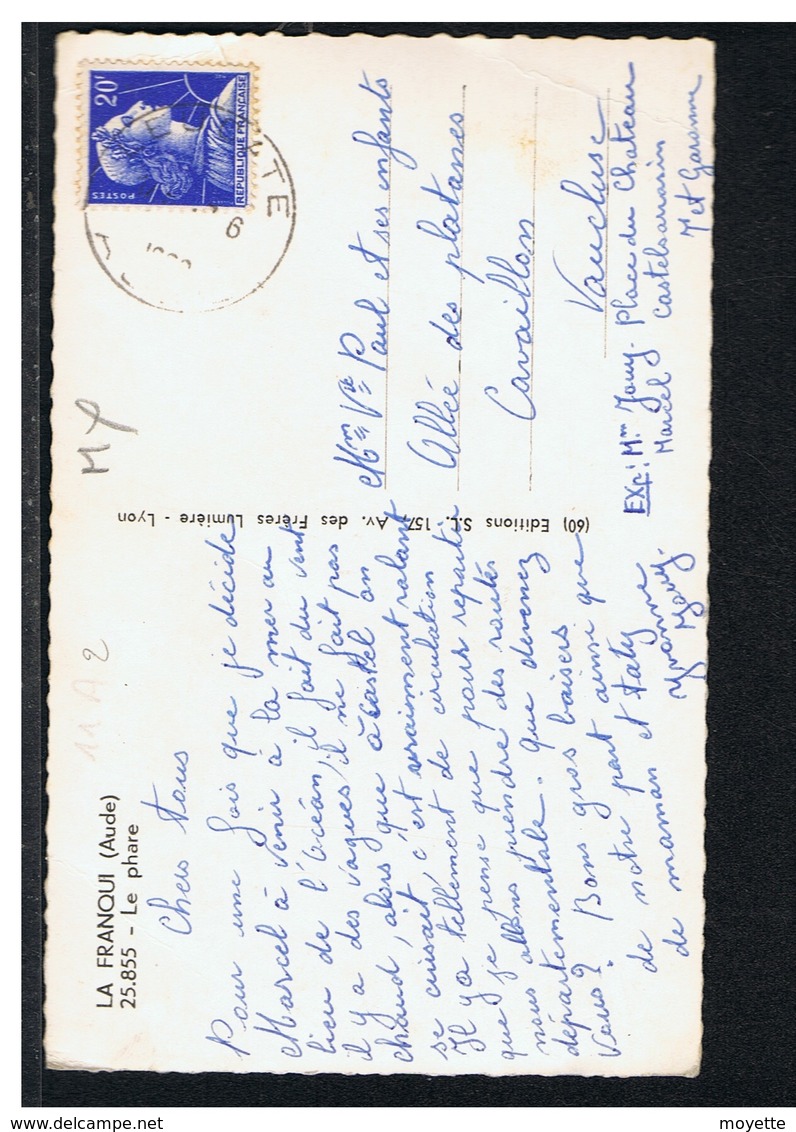 LA FRANQUI (Aude)
25.855 - Le phare
11 A 2
Chers tous
Pour une fois que je décide
Marcel à venir à la mer au
lieu de l'océan, il fait du vent
il y a des vagues, il ne fait pas
chaud, alors que à Castel on
se cuisait, c'est vraiment ralant
Il y a tellement de circulation
que je pense que pour repartir
nous allons prendre des routes
départementale. Que devenez
Vous? Bons gros baisers
de notre part ainsi que
de maman et taty
Yvonne
Jouy.
(60) Editions S.L. 157, Av. des Frères Lumière - Lyon
20F
POSTES
REPUBLIQUE FRANÇAISE
Mme Vve Paul et ses enfants
Allée des platanes
Cavaillon
Vaucluse
EXp: Mme Jouy. Place du Chateau
Marcel Castelsarrasin
T et Garonne
moyette